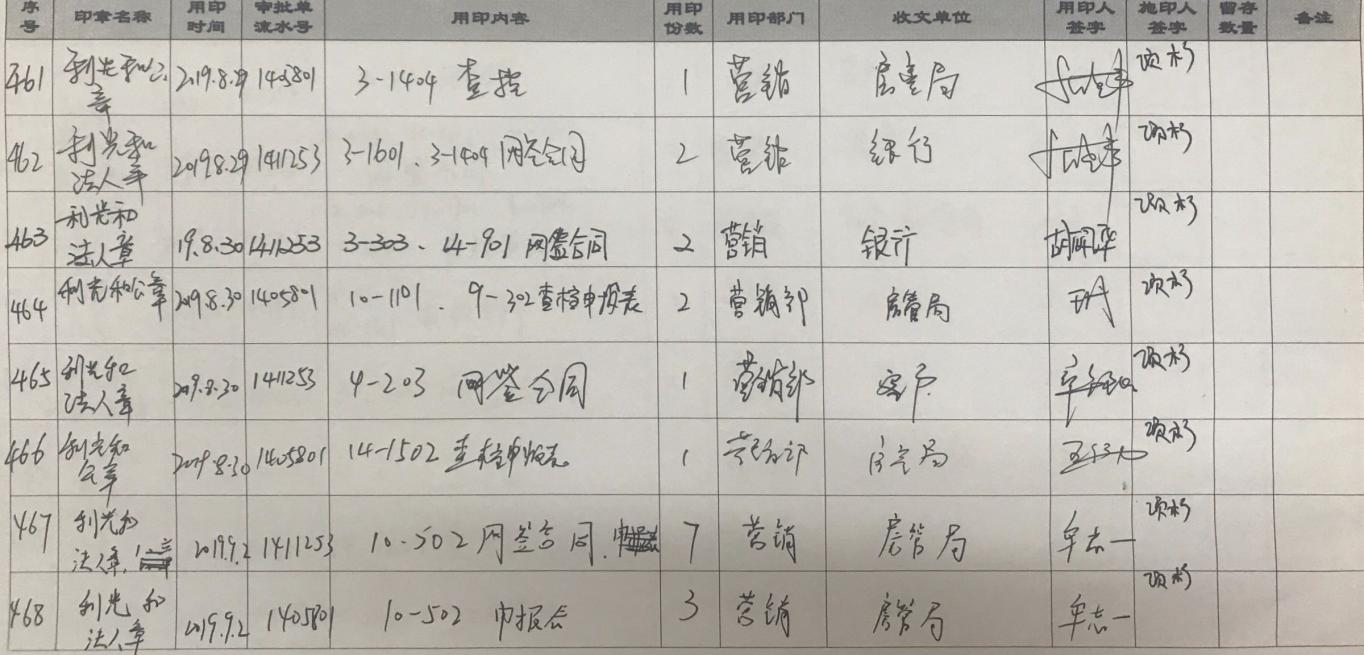 序号 印章名称 用印时间 审批单流水号 用印内容 用印份数 用印部门 收文单位 用印人签字 施印人签字 留存数量 备注
461 利光和公章 2019.8.29 1405801 3-1404 查档 1 营销 房管局 项杉
462 利光和法人章 2019.8.29 1411253 3-1601、3-1404 网签合同 2 营销 银行 项杉
463 利光和法人章 19.8.30 1411253 3-303、14-901 网签合同 2 营销 银行 项杉
464 利光和公章 2019.8.30 1405801 10-1101、9-302查档申报表 2 营销部 房管局 项杉
465 利光和法人章 2019.8.30 1411253 4-203 网签合同 1 营销部 客户 项杉
466 利光和公章 2019.8.30 1405801 14-1502 查档申报表 1 营销部 房管局 项杉
467 利光和法人章、 2019.9.2 1411253 10-502 网签合同、 7 营销 房管局 牟志一 项杉
468 利光和法人章 2019.9.2 1405801 10-502 申报表 3 营销 房管局 牟志一 项杉